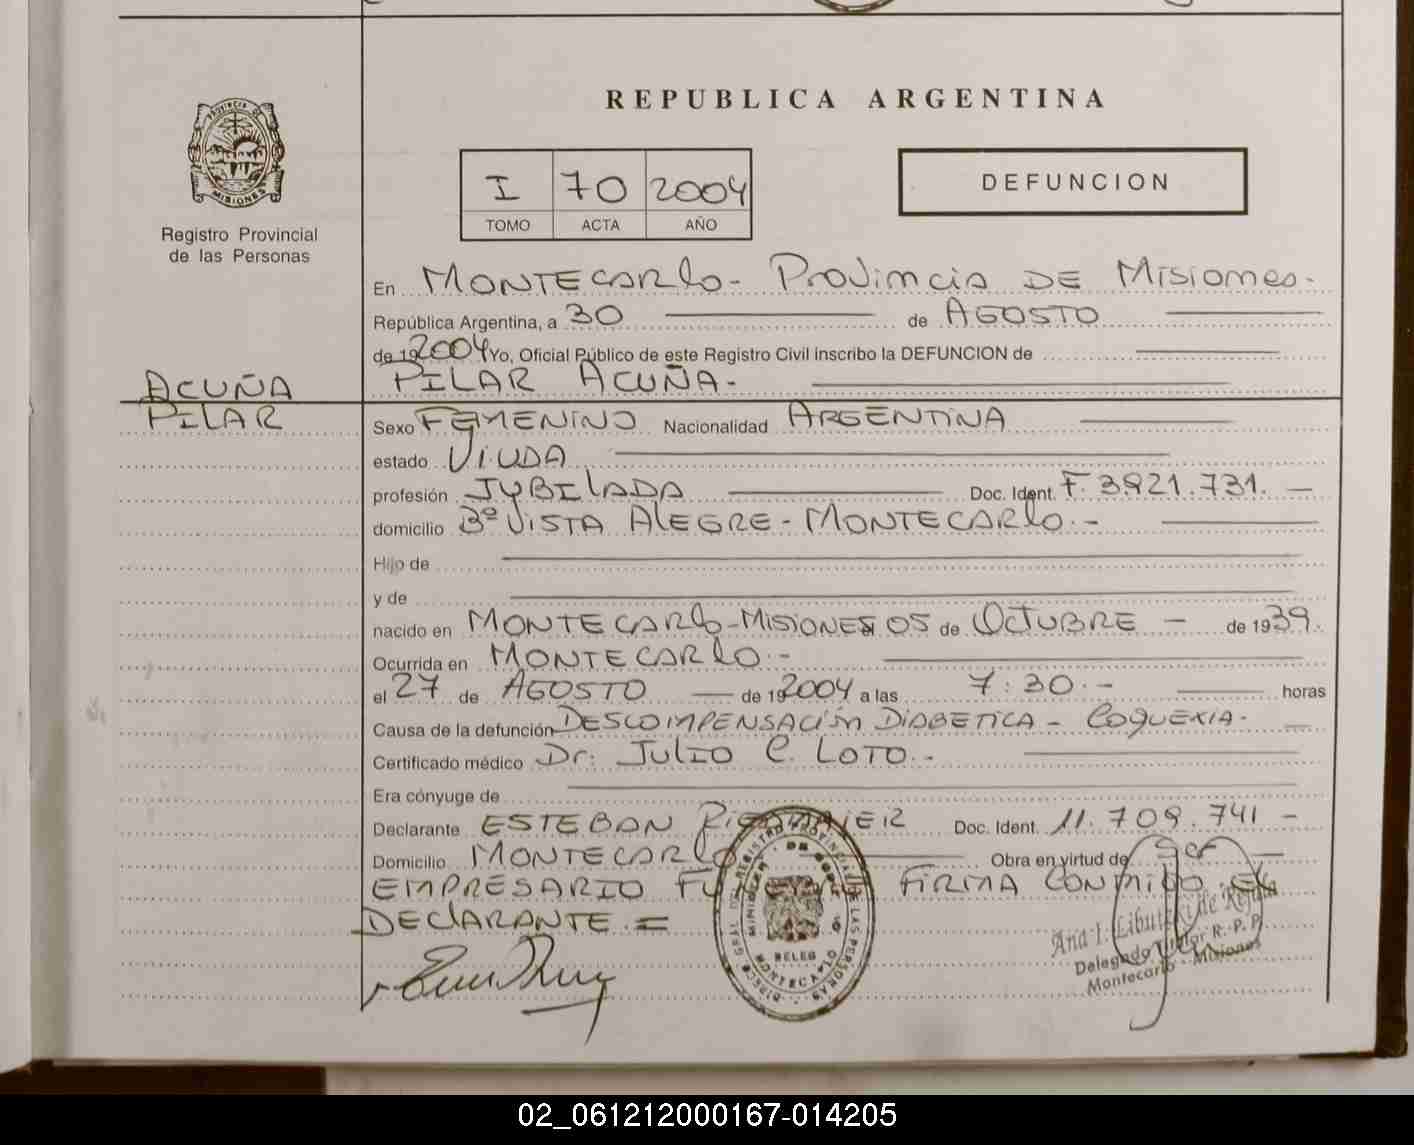 REPUBLICA ARGENTINA
PROVINCIA DE
MISIONES
Registro Provincial
de las Personas
I 70 2004
TOMO ACTA AÑO
DEFUNCION
En MONTECARlo- Provincia DE Misiones.
República Argentina, a 30 de AGOSTO
de 192004 Yo, Oficial Público de este Registro Civil inscribo la DEFUNCION de
PILAR ACUÑA-
ACUÑA
PILAR
Sexo FEMENINO Nacionalidad ARGENTINA
estado VIUDA
profesión JUBILADA Doc. Ident. F. 3.921.731. -
domicilio Bº VISTA AlEGRE - MONTECARlo.-
Hijo de
y de
nacido en MONTECARlo-MISIONES 05 de OCTUBRE - de 1939.
Ocurrida en MONTECARlo.-
el 27 de AGOSTO de 192004 a las 7:30.- horas
Causa de la defunción DESCOMPENSACIÓN DIABETICA - Coquexia.
Certificado médico Dr: JULIO C. LOTO.-
Era cónyuge de
Declarante ESTEBAN Doc. Ident. 11.709.741 -
Domicilio MONTECARlo Obra en virtud de ser
EMPRESARIO FIRMA CONMIGO EL
DEClARANTE.=
Ana I.
Delegado Titular R.P.P.
Montecarlo - Misiones
02_061212000167-014205